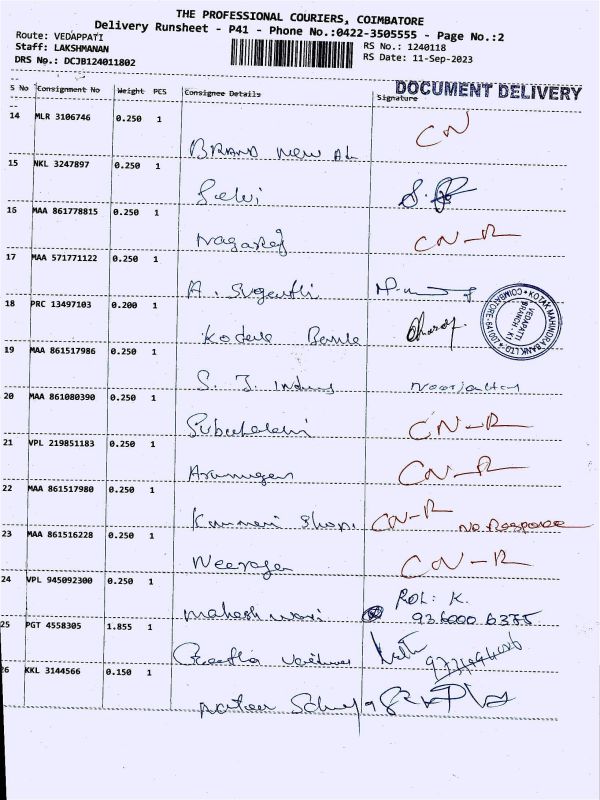 THE PROFESSIONAL COURIERS, COIMBATORE
Delivery Runsheet - P41 - Phone No.:0422-3505555 - Page No.:2
Route: VEDAPPATI
Staff: LAKSHMANAN
DRS No.: DCJB124011802
RS No.: 1240118
RS Date: 11-Sep-2023
DOCUMENT DELIVERY
S No Consignment No Weight PCS Consignee Details Signature
14 MLR 3106746 0.250 1
BRAND NEW CN
15 NKL 3247897 0.250 1
Selvi
16 MAA 861778815 0.250 1
Nagaraj CN-R
17 MAA 571771122 0.250 1
A. Suganthi
18 PRC 13497103 0.200 1
KOTAK MAHINDRA BANK LTD COIMBATORE-641007
VEDAPATTI
BRANCH : K1
19 MAA 861517986 0.250 1
S. J. Noorjahan
20 MAA 861080390 0.250 1
CN-R
21 VPL 219851183 0.250 1
Arumugam CN-R
22 MAA 861517980 0.250 1
CN-R No Response
23 MAA 861516228 0.250 1
CN-R
24 VPL 945092300 0.250 1
ROL: K.
Maheshwari 936000 6375
25 PGT 4558305 1.855 1
26 KKL 3144566 0.150 1